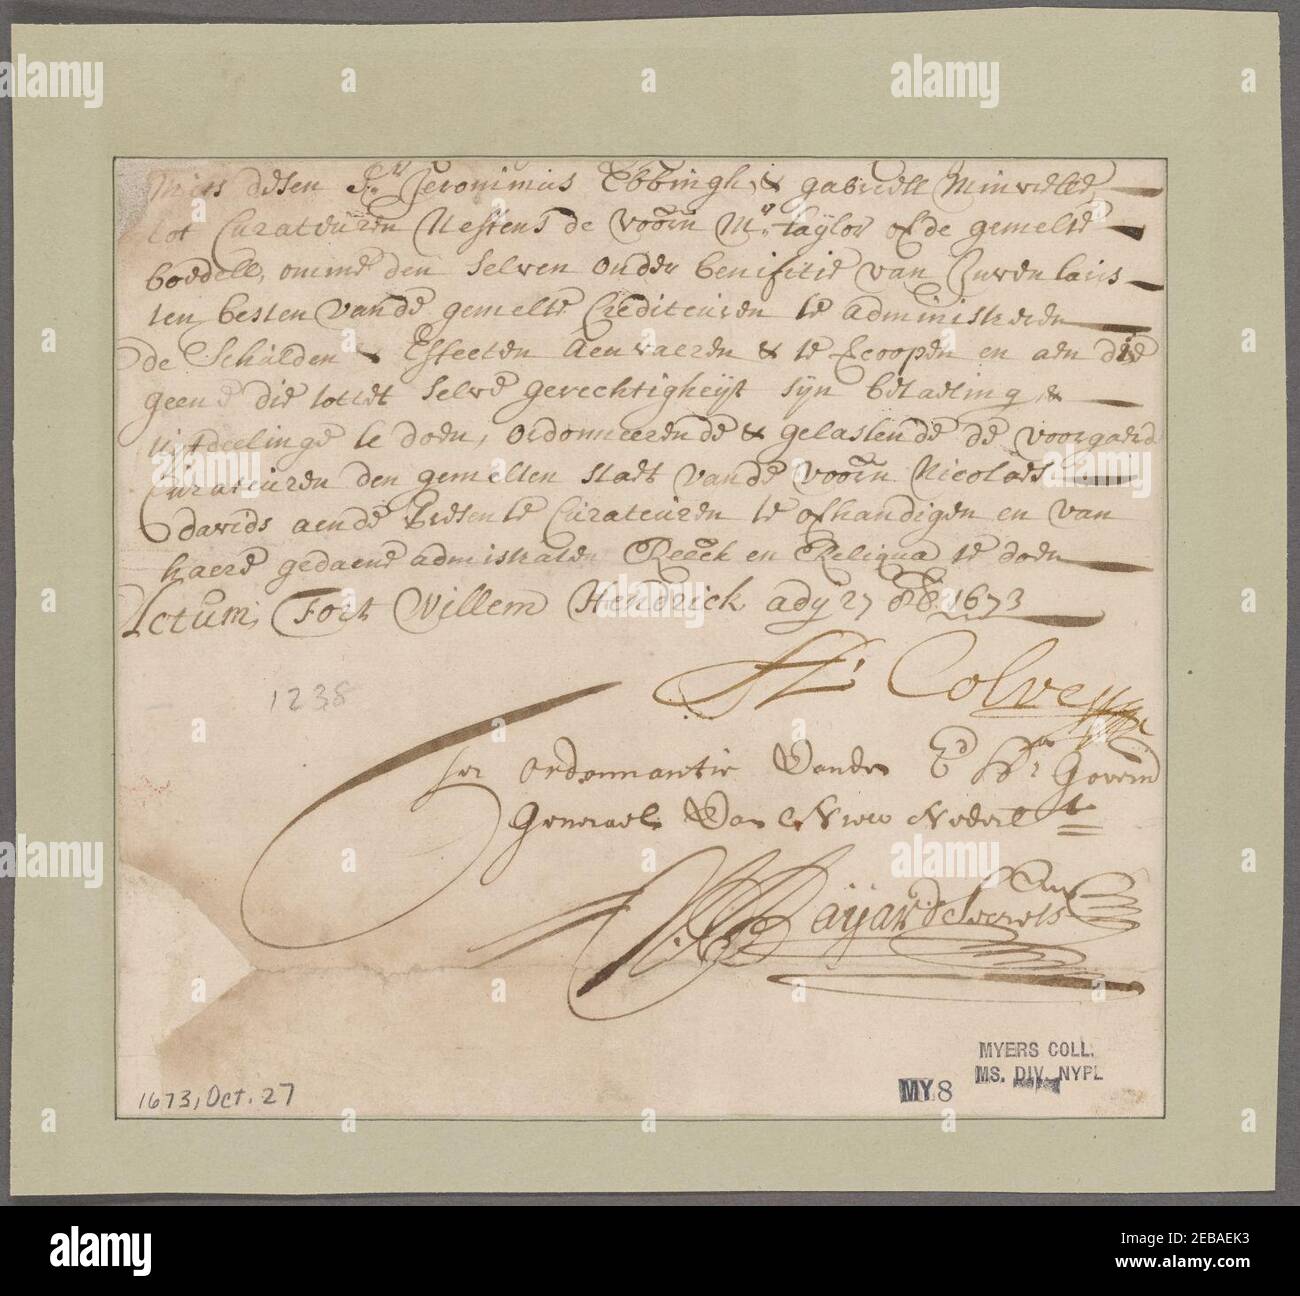 Mits desen Sr. Jeronimus Ebbingh, & gabriell Minvielle
tot Curateuren Neffens de voorn Mr. taylor of de gemelte
boedell, omme den selven onder benifitie van Inventaris
ten besten vande gemelte Crediteuren te administreren
de Schulden & Effecten aenvaerden & te vercoopen en aen die
geene die tottet selve gerechtigheyt syn betaeling, &
uytdeelinge te doen, ordonneerende & gelastende de voorgaende
Curateuren den gemelten staet vande voorn Nicolaes
davids aende Presente Curateuren te ofhandigen en van
haere gedaene admistratien Reeck en Reliqua te doen
Actum, Fort Willem Hendrick ady 27 8b. 1673
A: Colve
1238
Ter ordonnantie Vande Ed Hr Govern
Generael Van Nieu Nederlt
N: Bayard Secrets
MYERS COLL.
MS. DIV. NYPL
MY 8
1673, Oct. 27
alamy
a
Image ID: 2EBAEK3
www.alamy.com